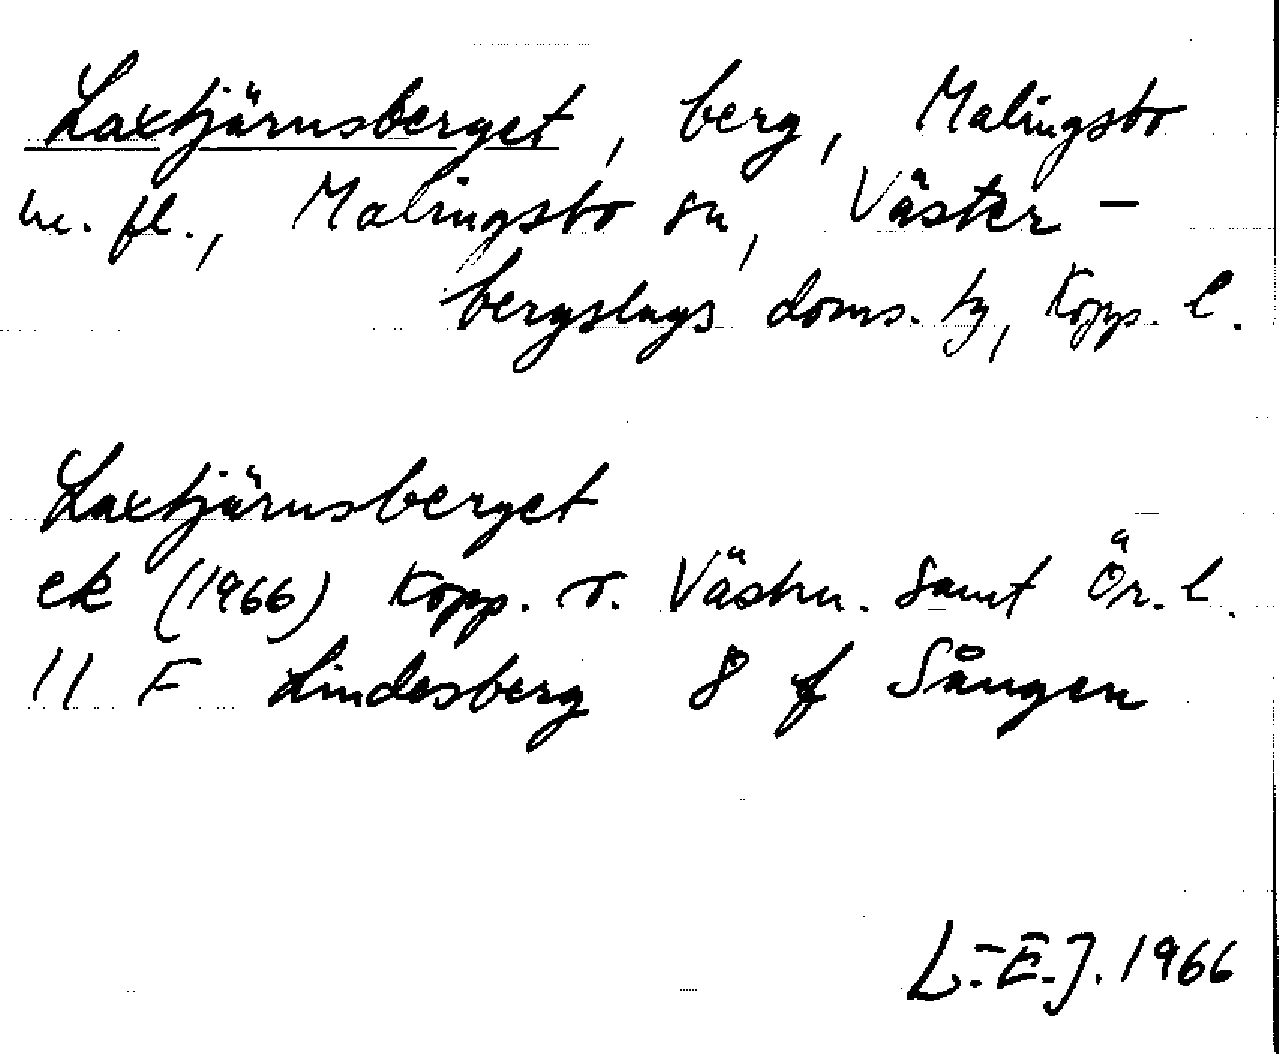 Laxtjärnsberget, berg, Malingsbo
m. fl., Malingsbo sn, Väster-
bergslags doms. tg, Kopp. l.
Laxtjärnsberget
ek (1966) Kopp. o. Västm. samt Ör. l.
11 F Lindesberg 8 f Sången
L.-E.J. 1966